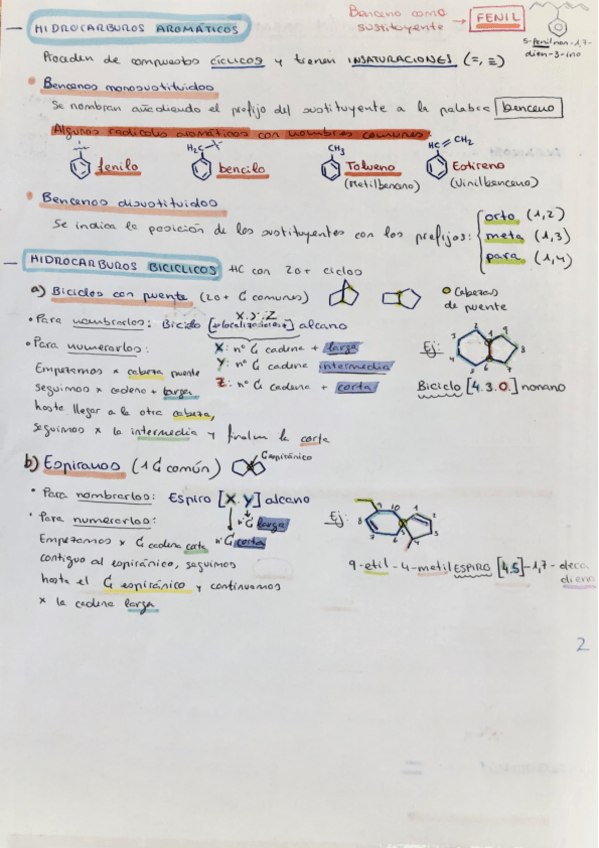 Benceno como sustituyente → FENIL
5-fenilnon-1,7-dien-3-ino
— HIDROCARBUROS AROMÁTICOS
Proceden de compuestos cíclicos y tienen INSATURACIONES (=, ≡)
• Bencenos monosustituidos
Se nombran añadiendo el prefijo del sustituyente a la palabra benceno
Algunos radicales aromáticos con nombres comunes:
fenilo
H₂C
bencilo
CH₃
Tolueno
(Metilbenceno)
HC = CH₂
Estireno
(Vinilbenceno)
• Bencenos disustituidos
Se indica la posición de los sustituyentes con los prefijos:
orto (1,2)
meta (1,3)
para (1,4)
— HIDROCARBUROS BICICLICOS HC con 2 o + ciclos
a) Biciclos con puente (2 o + C comunes)
Cabezas de puente
• Para nombrarlos: Biciclo [X.Y.Z] alcano
X: nº C cadena + larga
Y: nº C cadena intermedia
Z: nº C cadena + corta
• Para numerarlos:
Empezamos x cabeza puente
seguimos x cadena + larga
hasta llegar a la otra cabeza,
seguimos x la intermedia y final en la corta
Ej:
Biciclo [4.3.0.] nonano
b) Espiranos (1 C común)
C espiránico
• Para nombrarlos: Espiro [X.Y] alcano
nº C larga
nº C corta
• Para numerarlos:
Empezamos x C cadena corta
contiguo al espiránico, seguimos
hasta el C espiránico y continuamos
x la cadena larga
Ej:
9-etil-4-metil ESPIRO [4.5]-1,7-deca
dieno
2